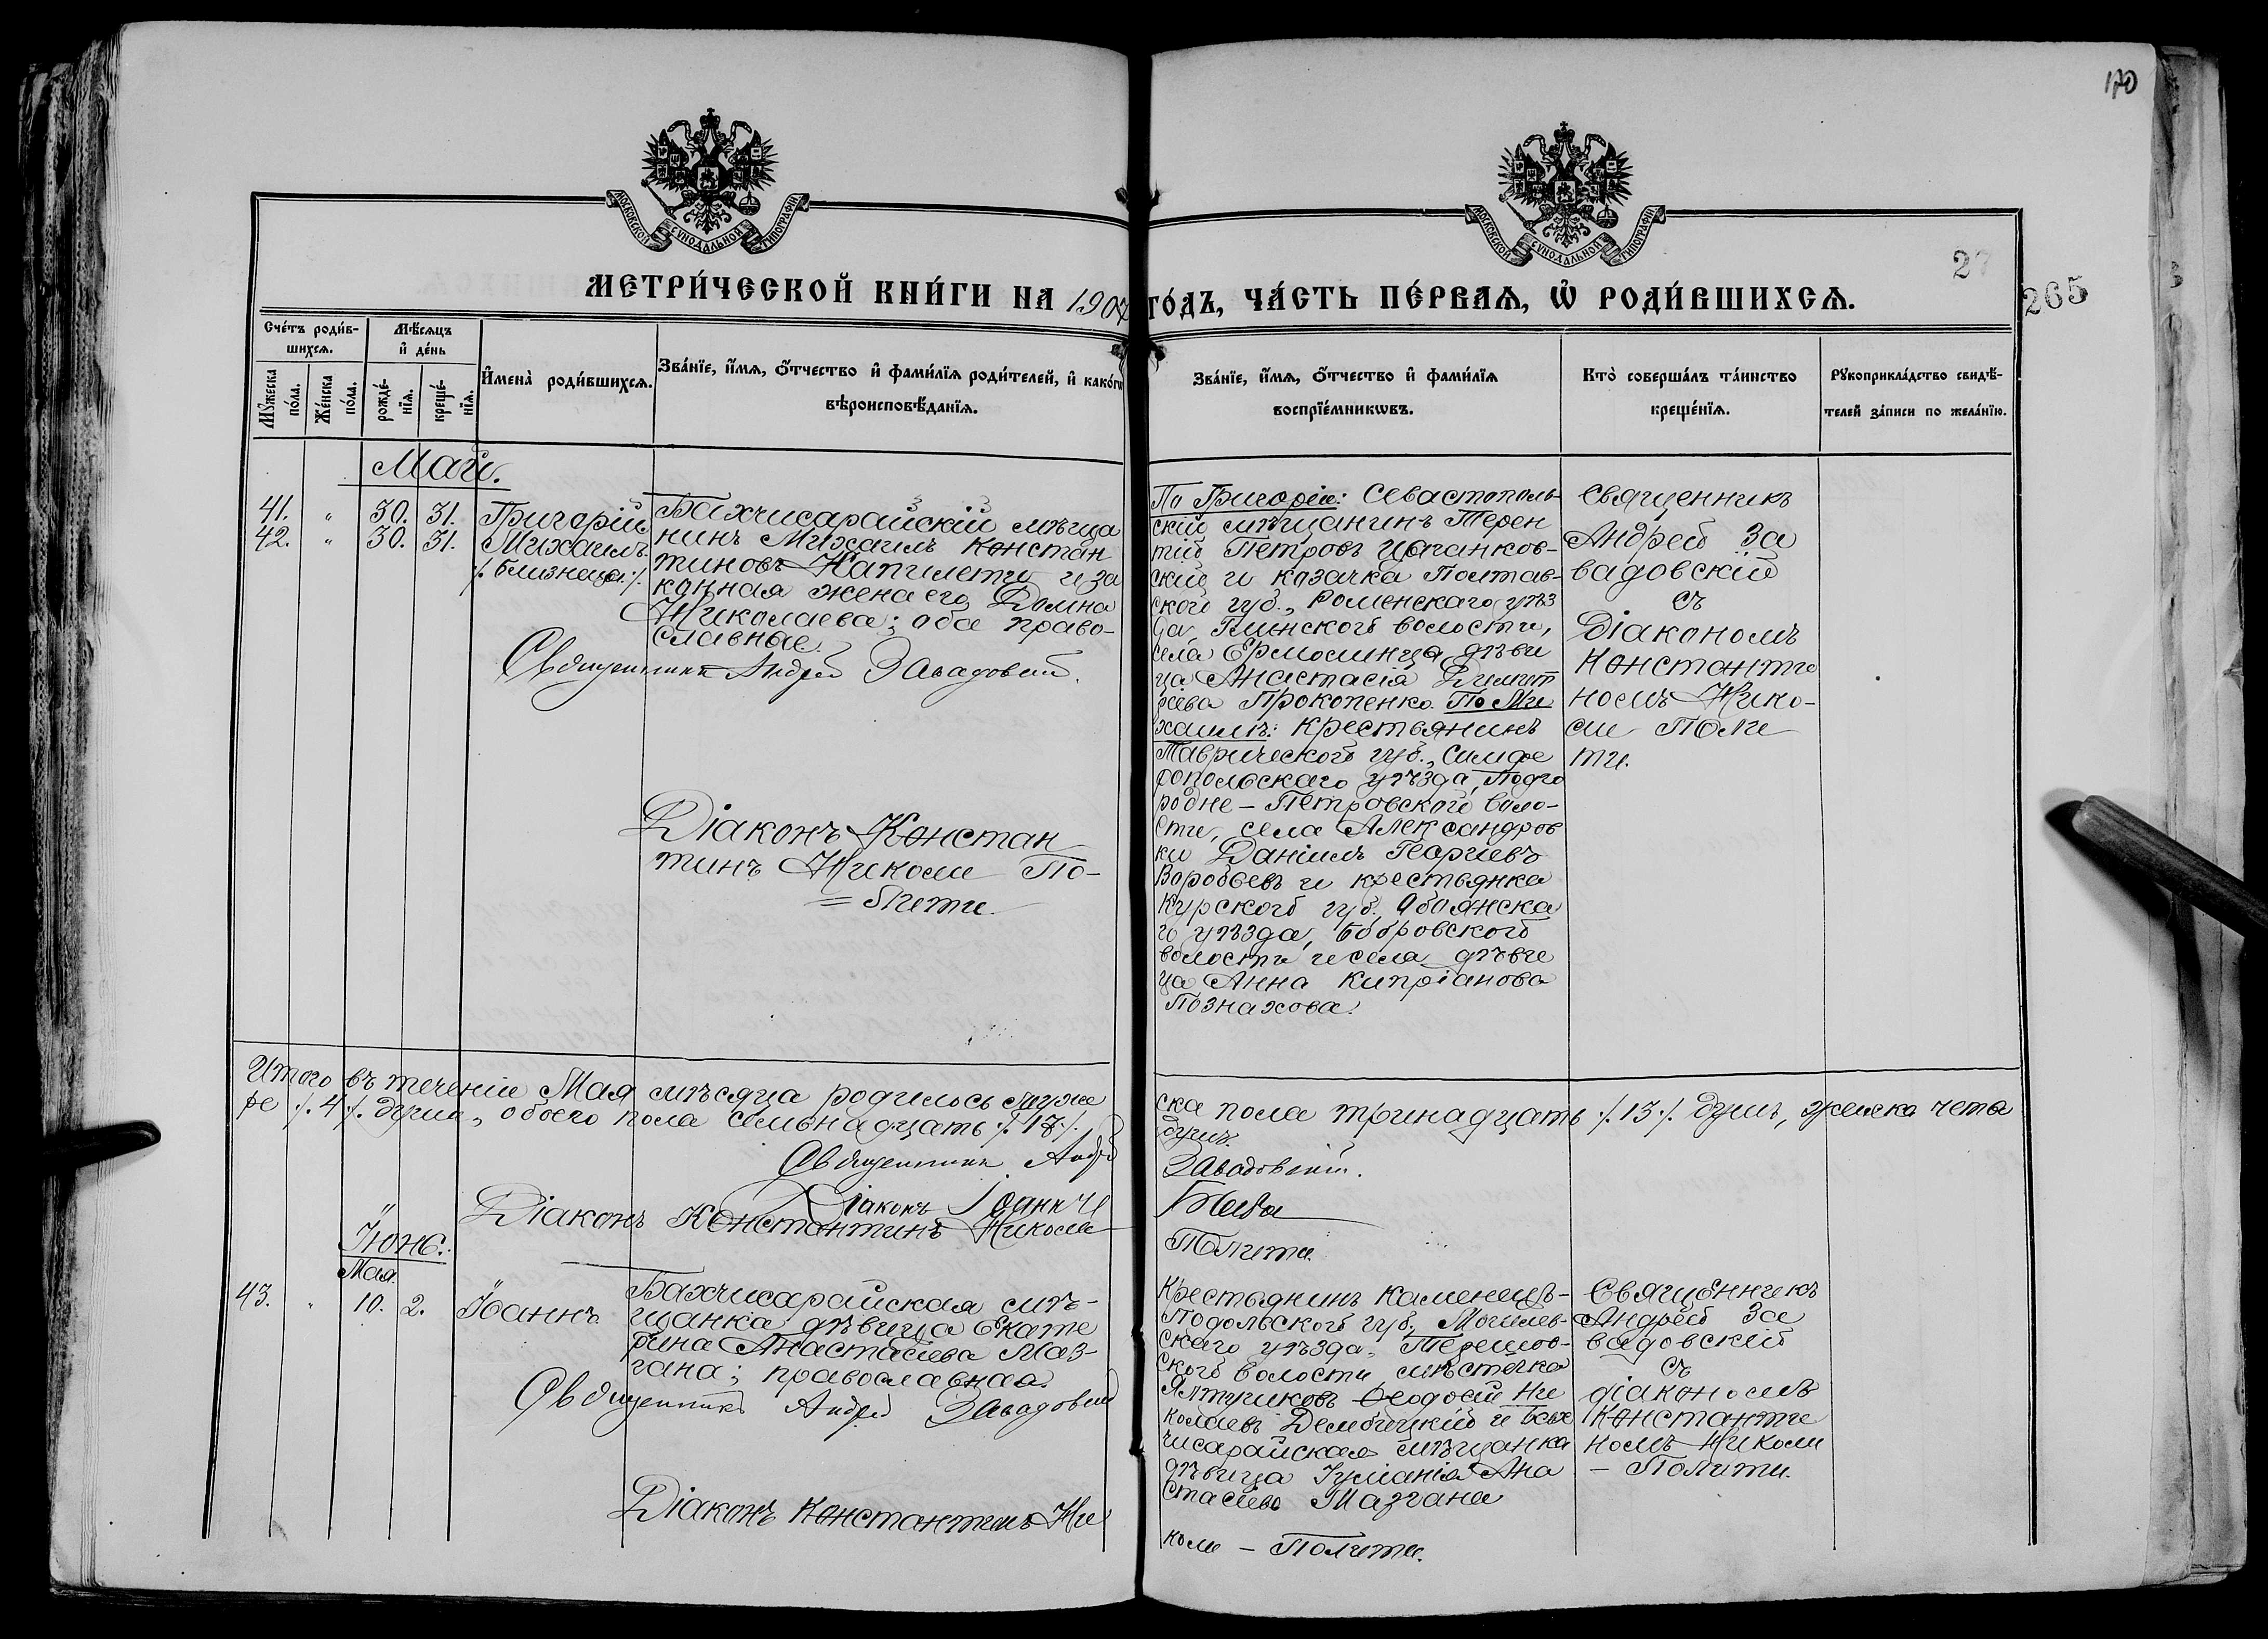 170
МОСКОВСКОЙ СУНОДАЛЬНОЙ ТИПОГРАФІИ
МОСКОВСКОЙ СУНОДАЛЬНОЙ ТИПОГРАФІИ
27
265
МЕТРИ́ЧЕСКОЙ КНИ́ГИ НА 1907 ГО́ДЪ, ЧА́СТЬ ПЕ́РВАЯ, Ѡ РОДИ́ВШИХСѦ.
Сче́тъ роди́в-
шихсѧ.
Мѣ́сѧцъ
и де́нь
Мꙋ́жеска
по́ла.
Же́нска
по́ла.
рожде́-
нїѧ.
креще́-
нїѧ.
И҆мена̀ роди́вшихсѧ.
Зва́нїе, и҆́мѧ, ѻ҆́тчество и҆ фами́лїѧ роди́телей, и҆ како́гѡ
вѣроисповѣ́данїѧ.
Зва́нїе, и҆́мѧ, ѻ҆́тчество и҆ фами́лїѧ
воспрїе́мникѡвъ.
Кто̀ соверша́лъ та́инство
креще́нїѧ.
Рꙋкоприкла́дство свидѣ́-
телей за́писи по жела́нїю.
Май.
41. " 30. 31. Григорій
42. " 30. 31. Михаилъ
/. близнецы ./.
Бахчисарайскій мѣща
нинъ Михаилъ Констан
тиновъ Капилети и за
конная жена его Домна
Николаева; оба право-
славные.
Священникъ Андрей Завадовскій.
Діаконъ Констан
тинъ Николи По-
= лити.
По Григоріи: Севастополь-
скій мѣщанинъ Терен
тій Петровъ Цыганков-
скій и козачка Полтав-
ской губ., Роменскаго уѣз
да, Глинской волости,
села Ермолинца дѣви
ца Анастасія Димит
ріева Прокопенко. По Ми
хаилѣ: крестьянинъ
Таврической губ., Симфе
ропольскаго уѣзда, Подго
родне-Петровской воло-
сти, села Александров
ки Даніилъ Георгіевъ
Воробьевъ и крестьянка
Курской губ. Обоянска
го уѣзда, Бобровской
волости и села дѣви
ца Анна Кипріанова
Познахова.
Священникъ
Андрей За
вадовскій
съ
Діакономъ
Константи
номъ Нико-
ли Поли
ти.
Итого въ теченіи Мая мѣсяца родилось муже
ска пола тринадцать /. 13 ./. душъ, женска четы
ре /. 4 ./. души, обоего пола семьнадцать /. 17 ./.
душъ.
Священникъ Андрей Завадовскій.
Діаконъ Іоаннъ
Діаконъ Константинъ Николи
Полити.
Іюнь.
Мая.
43. " 10. 2. Іоаннъ
Бахчисарайская мѣ-
щанка дѣвица Екате
рина Анастасіева Маз-
гана; православная.
Священникъ Андрей Завадовскій
Діаконъ Константинъ Ни
коли - Полити.
Крестьянинъ Каменецъ-
Подольской губ., Могилев-
скаго уѣзда,
ской волости, мѣстечка
Ялтушковъ Ѳеодосій Ни
колаевъ Дембицкій и Бах
чисарайская мѣщанка
дѣвица Іуліанія Ана
стасіева Мазгана
Священникъ
Андрей За
вадовскій
съ
діакономъ
Константи
номъ Николи
- Полити.